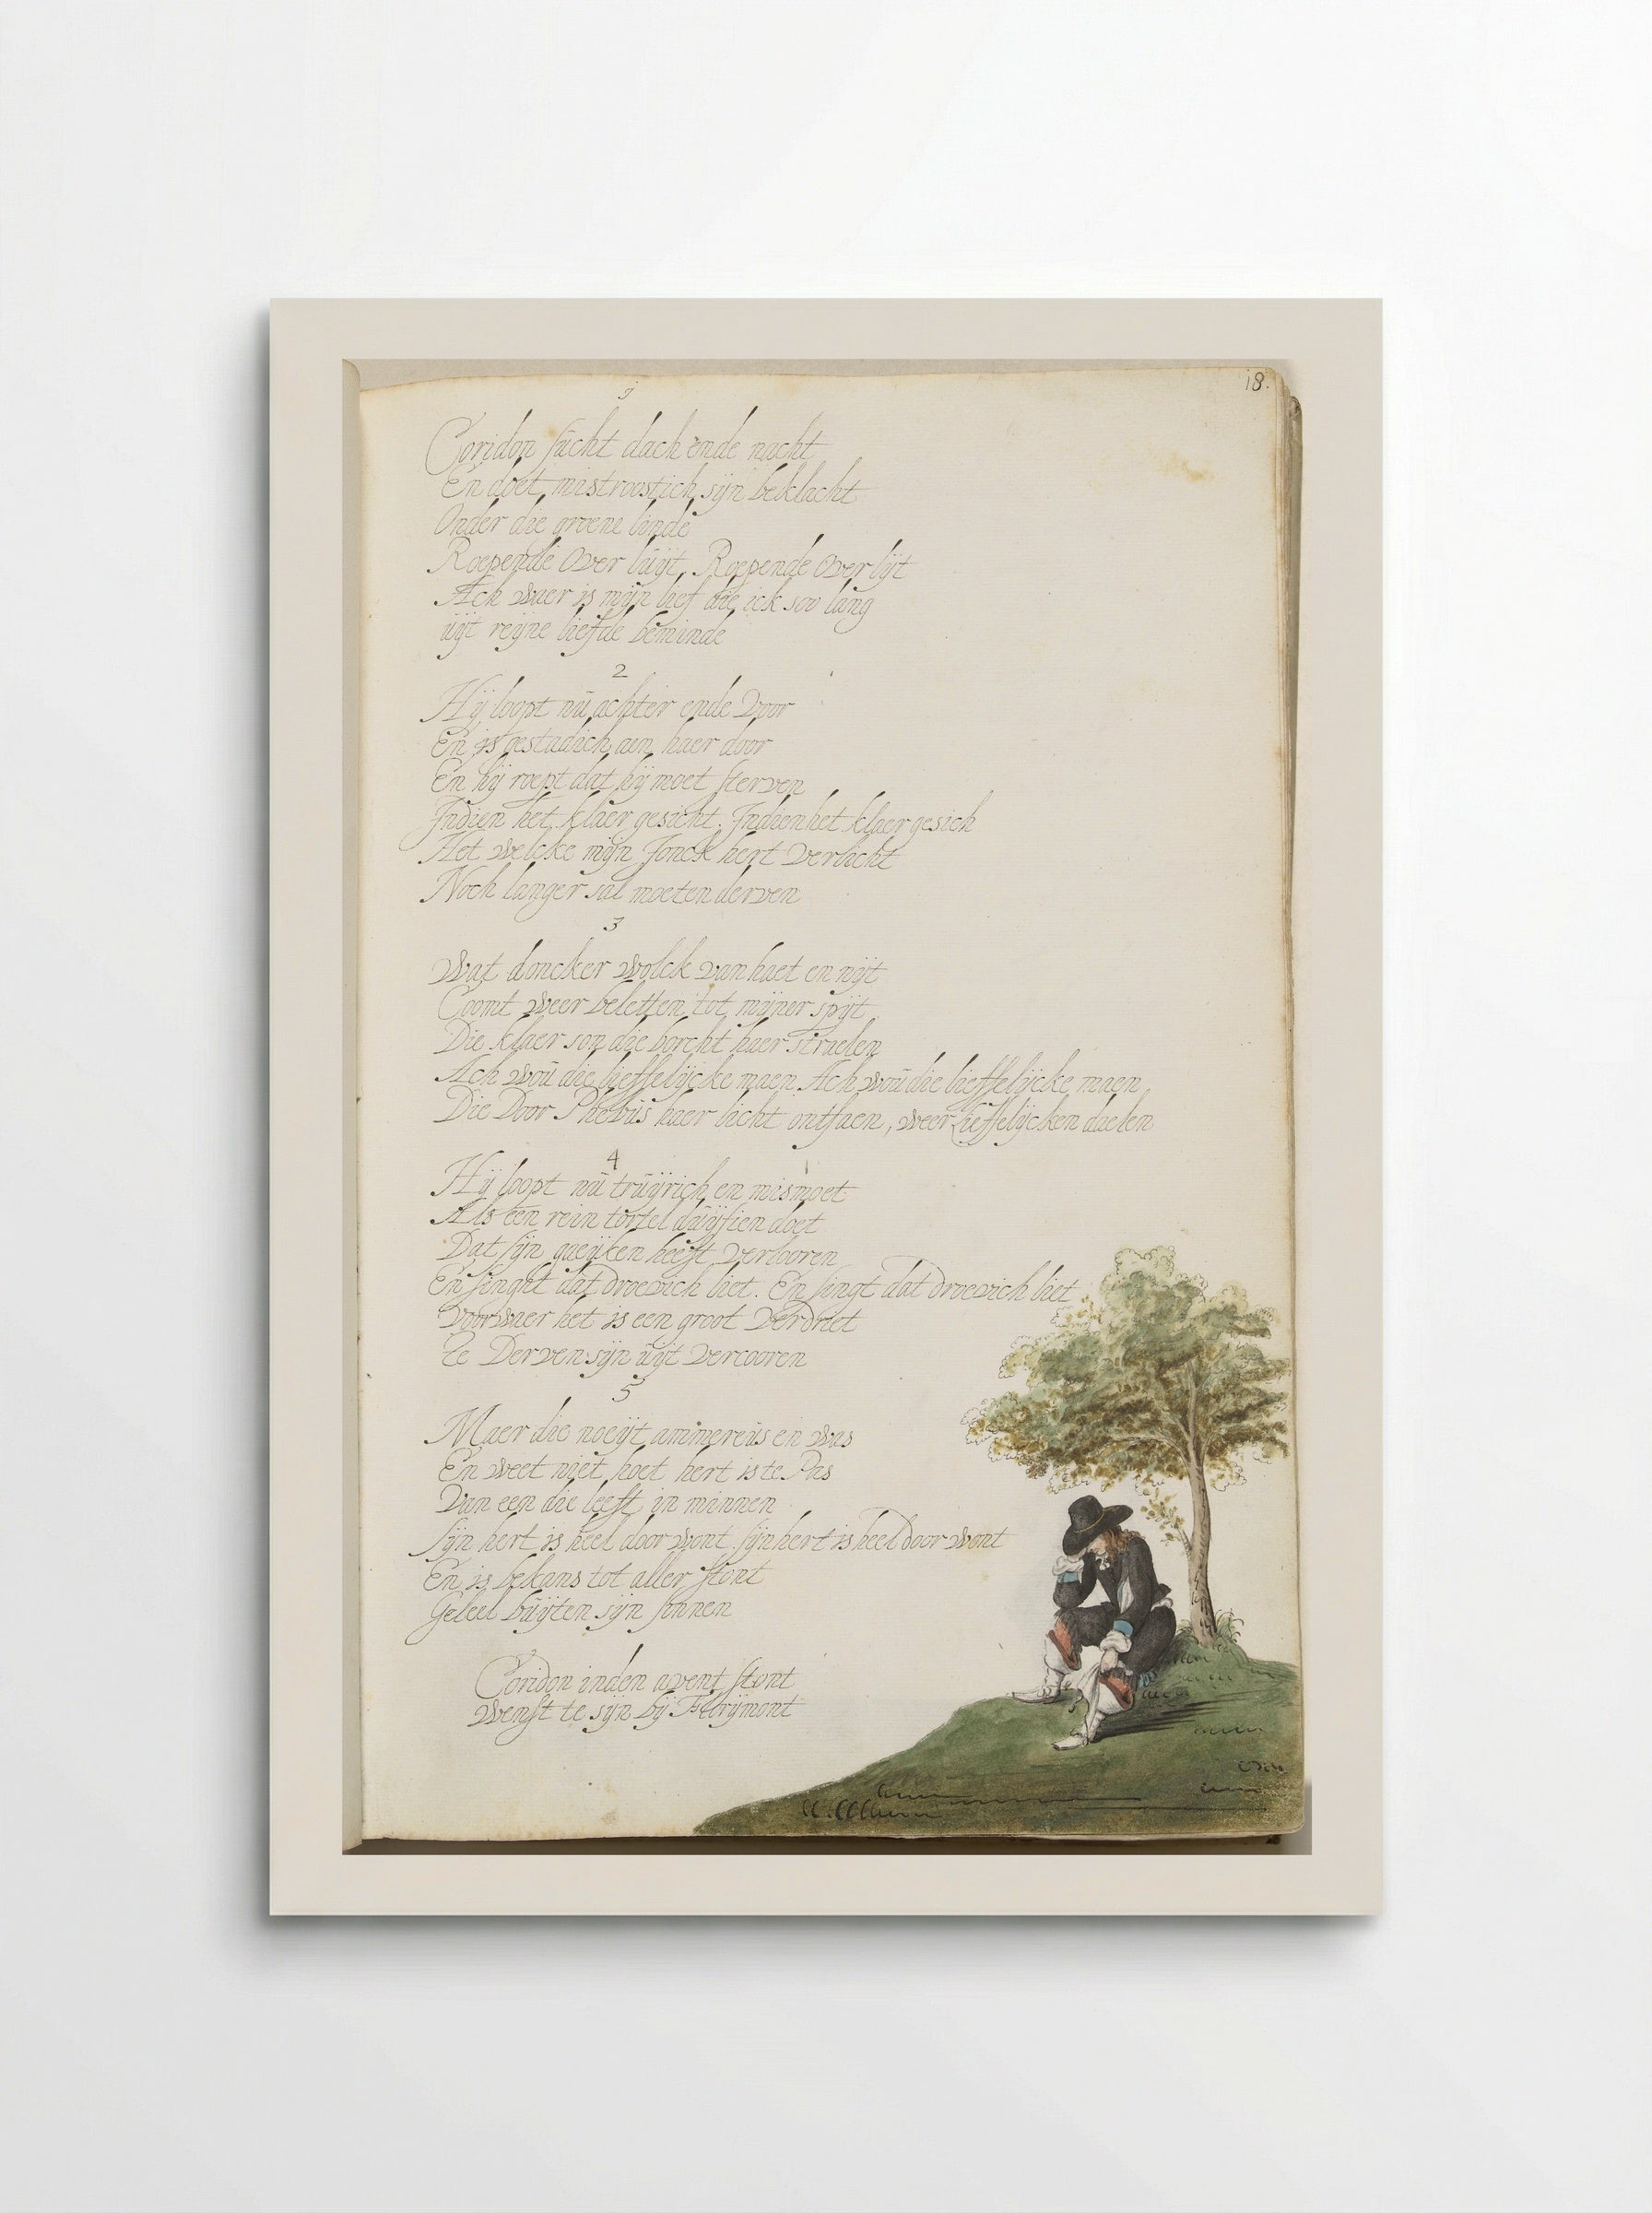 18.
1
Coridon sucht dach ende nacht
En doet mistroostich sijn beklacht
Onder die groene linde
Roepende over luijt, Roepende over lijt
Ach waer is mijn lief die ick soo lang
uijt reijne liefde beminde
2
Hij loopt nu achter ende voor
En is gestadich aen haer door
En hij roept dat hij moet sterven
Indien het klaer gesicht. Indien het klaer gesich
Het welcke mijn Jonck hert verlicht
Noch langer sal moeten derven
3
Wat doncker wolck van haet en nijt
Coomt weer beletten tot mijner spijt
Die klaer son die borcht haer straelen
Ach wou die lieffelijcke maen Ach wou die lieffelijcke maen,
Die Door Phebus haer licht ontfaen, weer Lieffelijcken daelen
4
Hij loopt nu truijrich en mismoet
Als een rein tortel duijfien doet
Dat sijn gaeijken heeft verlooren
En singht dat droevich liet. En singt dat droevich liet
Voorwaer het is een groot verdriet
Te Derven sijn uijt vercooren
5
Maer die noeijt ammereus en was
En weet niet hoet hert is te Pas
Van een die leeft in minnen
Sijn hert is heel door wont. sijn hert is heel Door wont
En is bekans tot aller stont
Geleel buijten sijn sinnen
Coridon inden avent stont
Wenst te sijn bij